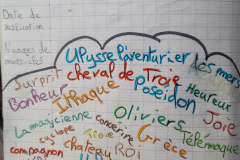 Date de
Nuages de
mots-clés
Ulysse l'aventurier les mers
Surpris cheval de Troie
Bonheur Ithaque poséidon Heureux
Oliviers Joie
La magicienne Télémaque
cyclope Grèce
compagnon chateau ROI